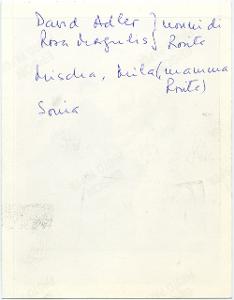 David Adler } nonni di
Rosa Margulis } Ronite
Mischa, Mila (mamma
Ronite)
Sonia